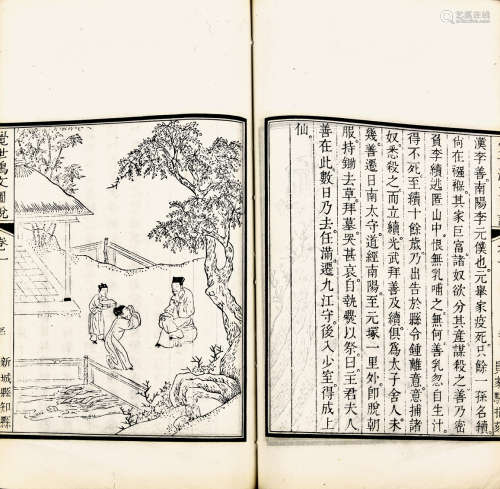 漢李善南陽李元僕也元舉家疫死只餘一孫名續
何在襁褓其家巨富諸奴欲分其產謀殺之善乃密
負李續逃匿山中恨無乳哺之無何善乳忽自生汁
得不死至續十餘歲乃出告於縣令鍾離意意捕諸
奴悉殺之而立續光武拜善及續俱爲太子舍人未
幾善遷日南太守道經南陽至元塚一里外卽脫朝
服持鋤去草拜墓哭甚哀自執爨以祭曰主君夫人
善在此數日乃去任滿遷九江守後入少室得成上
仙
世鴻文圖說 卷一 新城縣知縣
艺狐在线